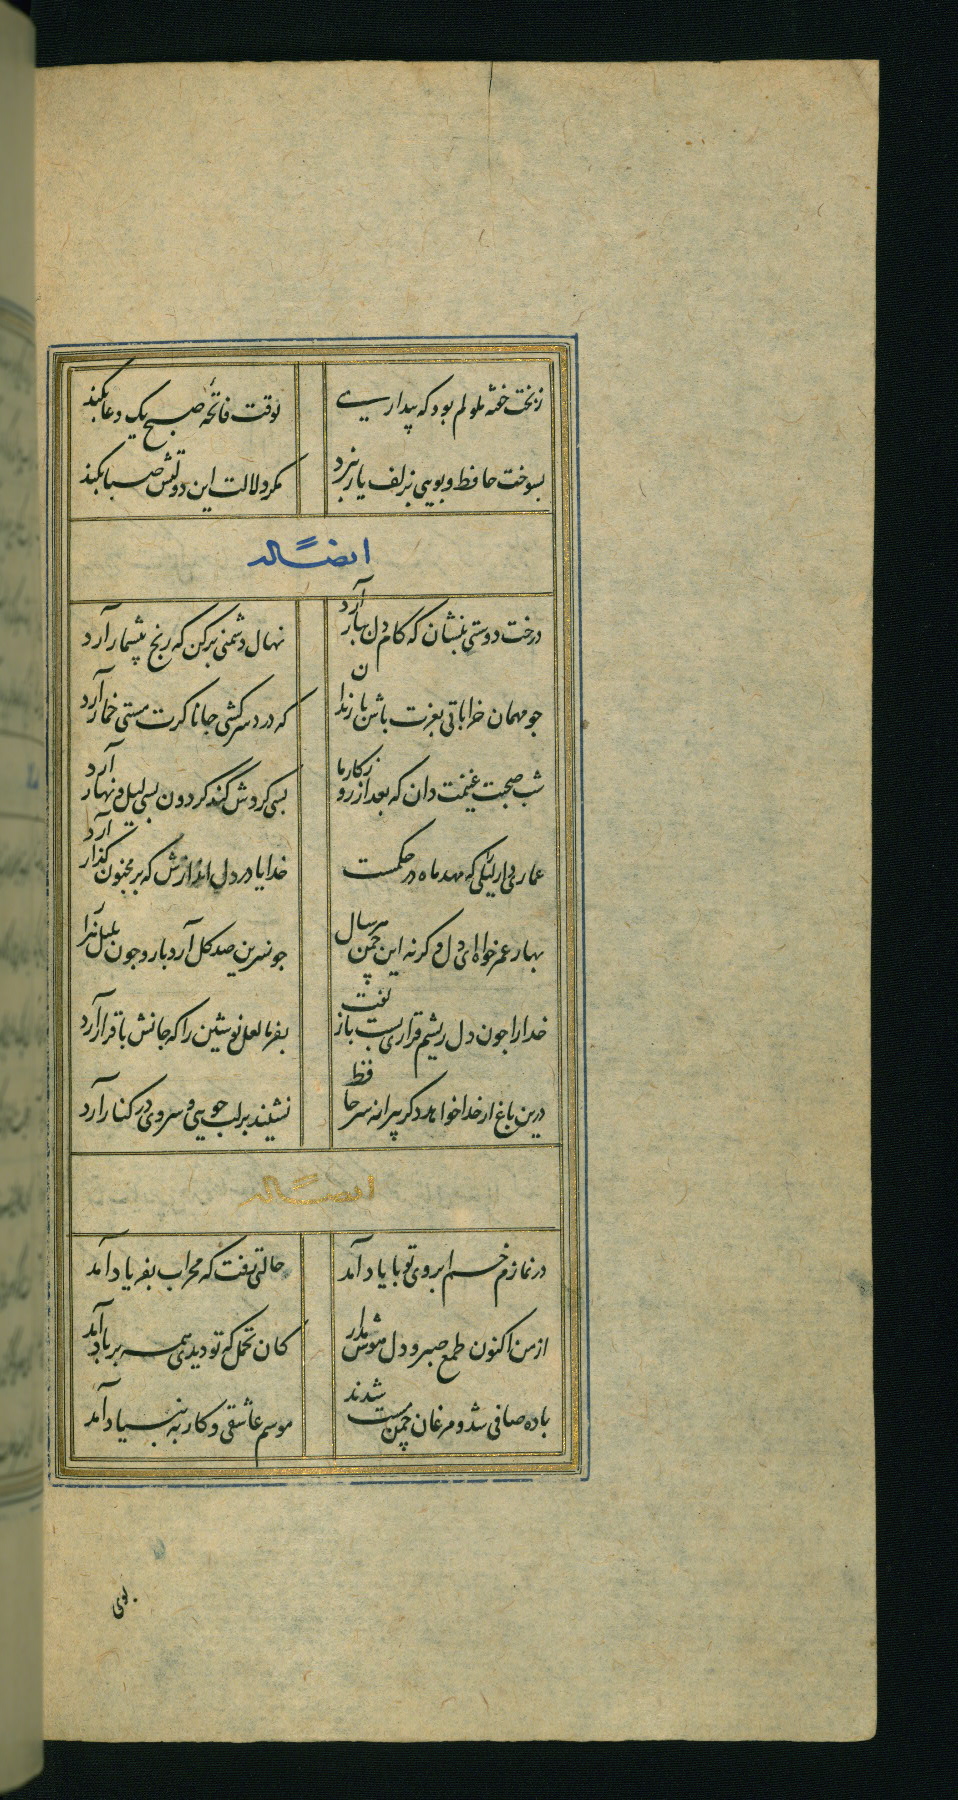 ز بخت خفته ملولم بود که بیداری
بوقت فاتحه صبح یک دعا بکند
بسوخت حافظ و بویی بزلف یار نبرد
مکر دلالت این دولتش صبا بکند
ایضاً له
درخت دوستی بنشان که کام دل ببار آرد
نهال دشمنی برکن که رنج بیشمار آرد
جو مهمان خراباتی بعزت باش با رندان
که درد سر کشی جانا کرت مستی خمار آرد
شب صحبت غنیمت دان که بعد از روزکار ما
بسی کردش کند کردون بسی لیل و نهار آرد
عماری دار لیلی که مهد ماه در حکمست
خدایا در دل اندازش که بر مجنون گذار آرد
بهار عمر خواه ای دل و کرنه این چمن هر سال
جو نسرین صد کل آرد بار و جون بلبل هزار آرد
خدا را جون دل ریشم قراری بست با زلفت
بفرما لعل نوشین را که جانش باقرار آرد
درین باغ از خدا خواهد دکر پیرانه سر حافظ
نشیند بر لب جویی و سروی در کنار آرد
ایضاً له
در نمازم خم ابروی تو با یاد آمد
حالتی رفت که محراب بفریاد آمد
از من اکنون طمع صبر و دل و هوش مدار
کان تحمل که تو دیدی همه بر باد آمد
باده صافی شد و مرغان چمن مست شدند
موسم عاشقی و کار به بنیاد آمد
بوی